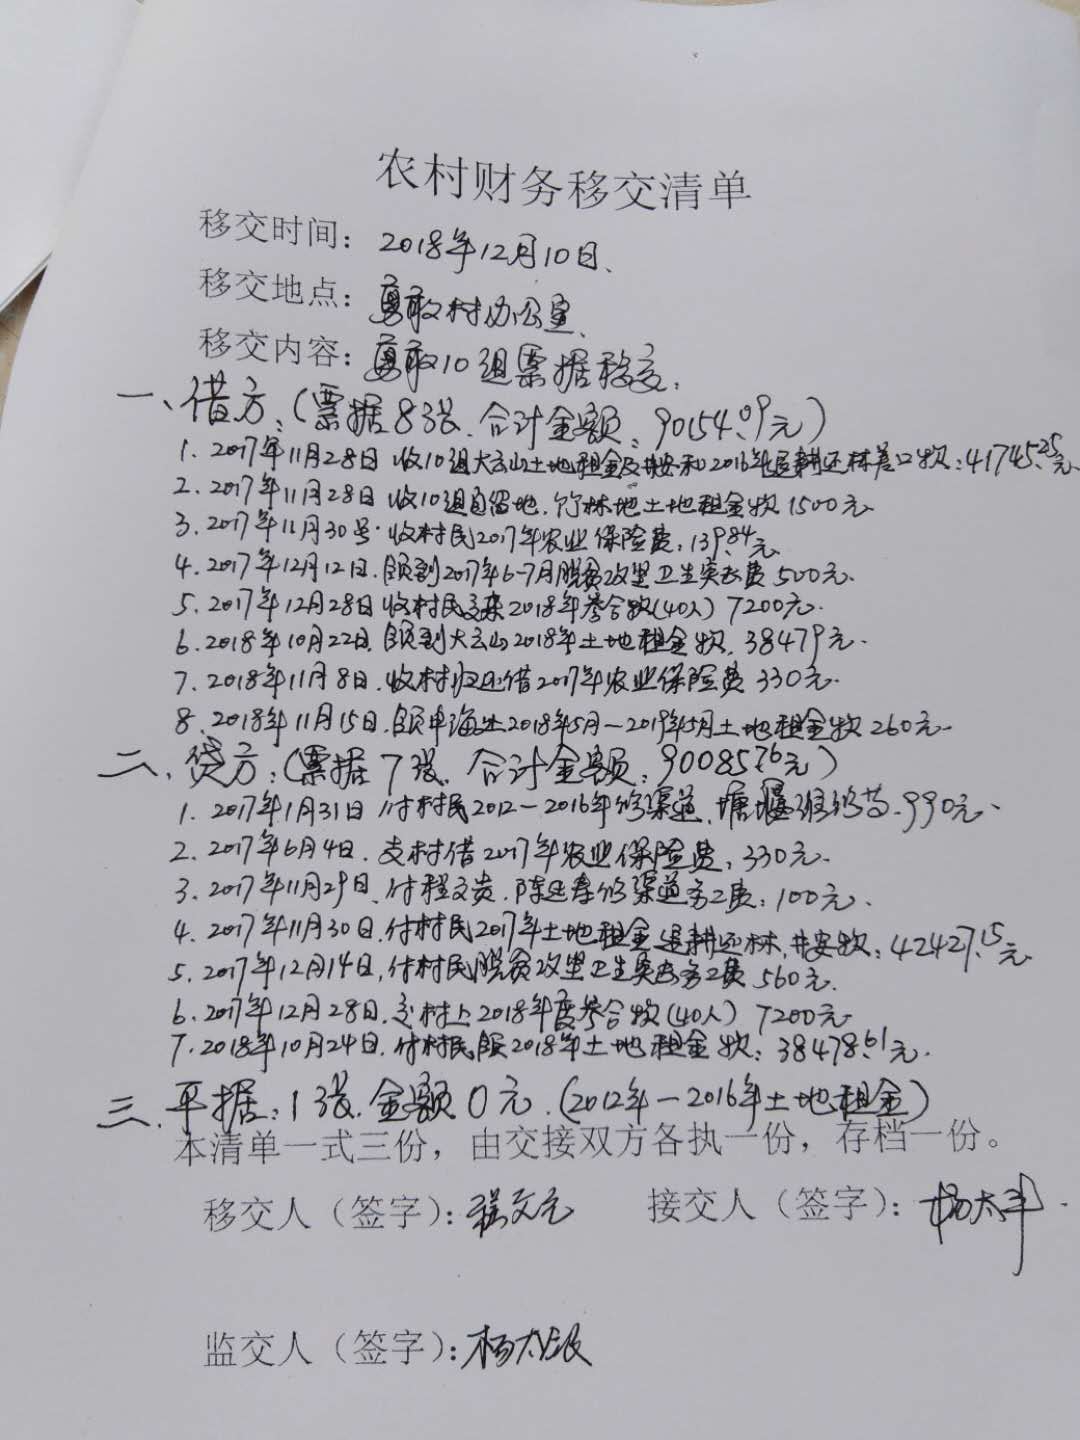 农村财务移交清单
移交时间：2018年12月10日.
移交地点：勇敢村办公室.
移交内容：勇敢10组票据移交.
一、借方：(票据8张.合计金额：90154.09元)
1.2017年11月28日收10组大云山土地租金及林安和2016年退耕还林差口款：41745.25元
2.2017年11月28日收10组自留地.竹林地土地租金款1500元
3.2017年11月30号收村民2017年农业保险费：139.84元
4.2017年12月12日.领到2017年6-7月脱贫攻坚卫生费500元.
5.2017年12月28日收村民交来2018年参合款(40人)7200元.
6.2018年10月22日.领到大云山2018年土地租金款.38479元.
7.2018年11月8日.收村归还借2017年农业保险费330元.
8.2018年11月15日.领申海2018年5月—2019年5月土地租金款260元.
二、贷方：(票据7张.合计金额：90085.76元)
1.2017年1月31日付村民2012—2016年修渠道.塘堰维修.990元.
2.2017年6月4日.支村借2017年农业保险费：330元.
3.2017年11月29日.付程文贵.陈廷寿修渠道务工费：100元.
4.2017年11月30日.付村民2017年土地租金退耕还林.款：42427.15元
5.2017年12月14日.付村民脱贫攻坚卫生务工费560元.
6.2017年12月28日.交村上2018年度参合款(40人)7200元
7.2018年10月24日.付村民领2018年土地租金款：38478.61元.
三.平据：1张.金额0元.(2012年—2016年土地租金)
本清单一式三份，由交接双方各执一份，存档一份。
移交人（签字）：程文元 接交人（签字）：杨太平
监交人（签字）：杨太